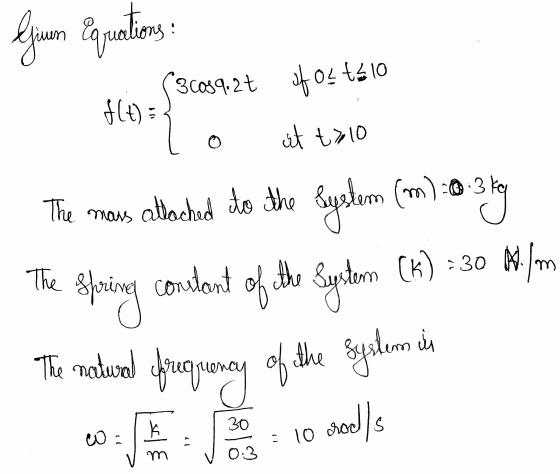 Given Equations:
f(t) = { 3cos9.2t if 0 ≤ t ≤ 10
0 at t ≥ 10
The mass attached to the System (m) = 0.3 kg
The Spring constant of the System (k) = 30 N/m
The natural frequency of the System is
ω = √(k/m) = √(30/0.3) = 10 rad/s